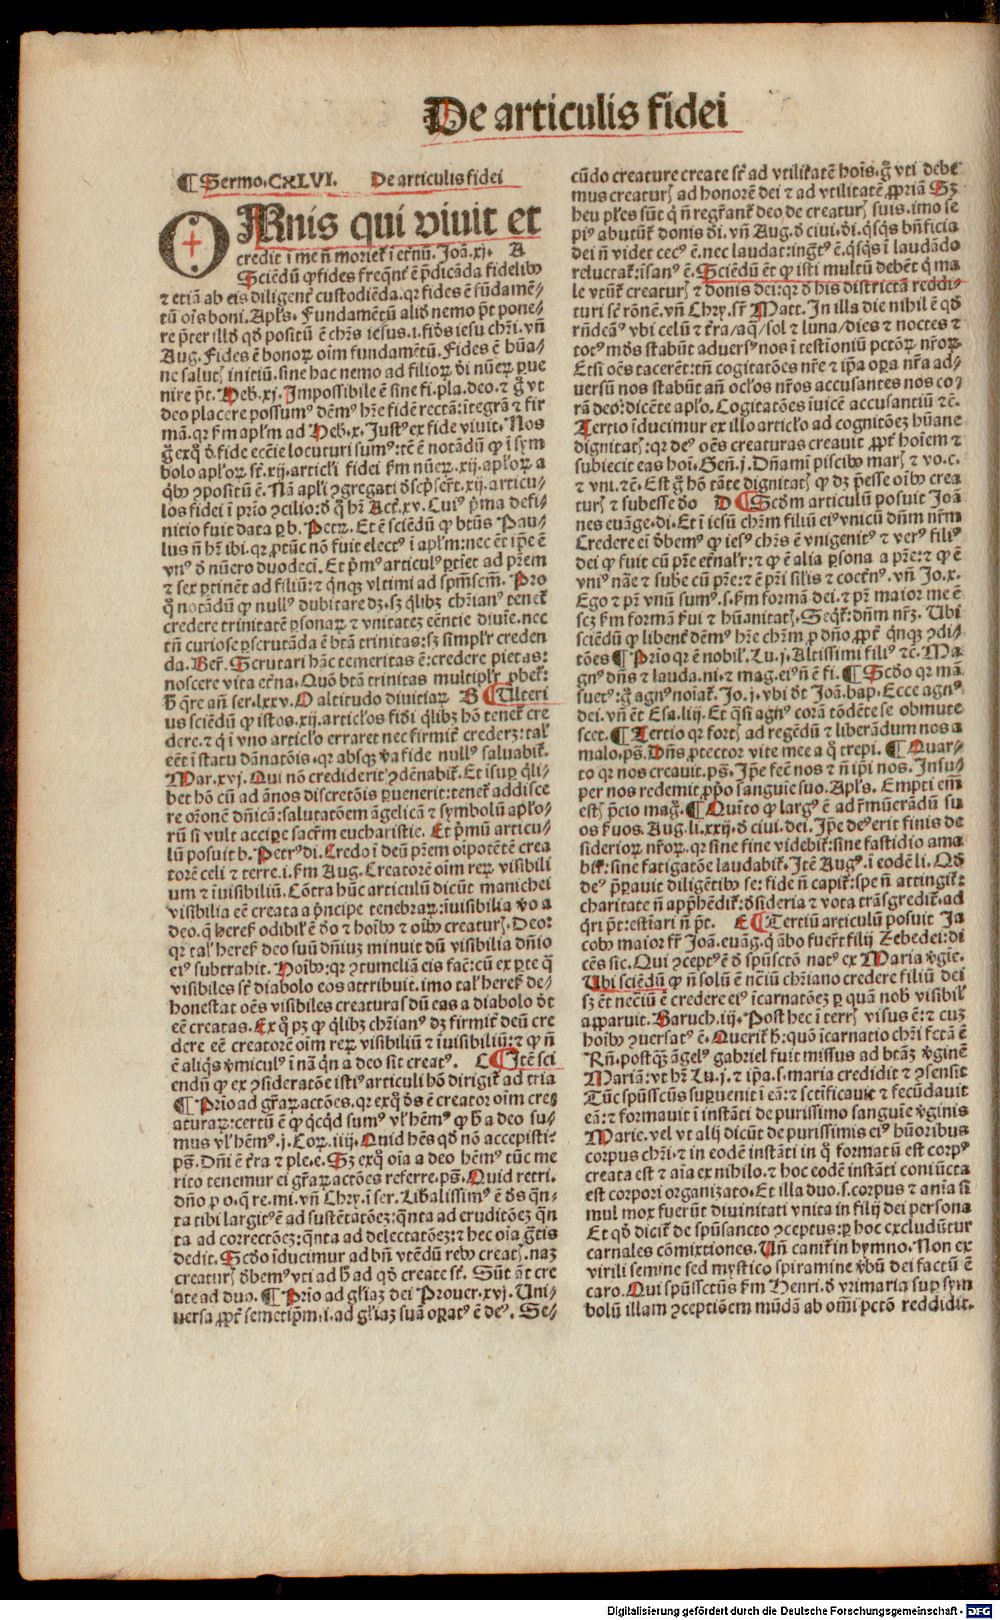 De articulis fidei
¶ Sermo. CXLVI. De articulis fidei
OMnis qui viuit et
credit ī me nō moriet᷑ ī et̄nū. Joā. xj. A
Sciēdū ꝙ fides freqn̄t᷑ ē p̄dicāda fidelibꝰ
⁊ etiā ab eis diligent᷑ custodiēda. qꝛ fides ē fūdamē-
tū oīs boni. Apl̄s. Fundamētū aliđ nemo pōt pone-
re p̄ter illđ qđ positū ē chr̄s iesus. i. fiđs iesu chr̄i. vn̄
Aug. Fides ē bonoꝝ oīm fundamētū. Fides ē hūa-
ne saluꝭ initiū. sine hac nemo ad filioꝝ di nūeꝝ ꝑue
nire pōt. Heb. xj. Impossibile ē sine fi. pla. deo. ⁊ g̊ vt
deo placere possumꝰ dēmꝰ hr̄e fidē rectā: itegrā ⁊ fir
mā. qꝛ ẜm apl̄m ad Heb. x. Justꝰ ex fide viuit. Nos
g̊ exq̊ đ. fide ecc̄ie locuturi sumꝰ: tc̄ ē notādū ꝙ ī sym
bolo apl̄oꝝ st̄. xij. articl̓i fidei ẜm nūeꝝ. xij. apl̄oꝝ a
q̓bꝰ ꝯpositū ē. Nā apl̓i ꝯgregati đsc̓pser̄t. xij. articu-
los fidei ī p̓rio ꝯcilio: đ q̊ hr̄ Act̓. xv. Cuiꝰ p̓ma defi-
nitio fuit data ꝑ b. Petꝝ. Et ē sciēdū ꝙ btūs Pau-
lus nō hr̄ ibi. qꝛ ꝓtūc nō fuit electꝰ ī apl̄m: nec ēt ip̄e ē
vnꝰ đ nūero duodeci. Et p̓mꝰ articulꝰ ꝑtīet ad pr̄em
⁊ sex ꝑtinēt ad filiū: ⁊ q̓nqꝫ vltimi ad spm̄scm̄. Pro
q̊ notādū ꝙ nullꝰ dubitare dꝫ. sꝫ q̓libꝫ chr̄ianꝰ tenet᷑
credere trinitatē ꝑsonaꝝ ⁊ vnitatez eēntie diuīe. nec
tn̄ curiose ꝑscrutāda ē btā trinitas: sꝫ simpl̓r creden
da. Ber̓. Scrutari hāc temeritas ē: credere pietas:
noscere vita et̄na. Quō btā trinitas multipl̓r ꝓbet᷑:
h̄ q̄re an̄ ser. lxxv. O altitudo diuitiaꝝ. B ¶ Ulteri
us sciēdū ꝙ istos. xij. articl̓os fidi q̓libꝫ hō tenet᷑ cre
dere. ⁊ q̓ ī vno articl̓o erraret nec firmit᷑ crederꝫ: tal̓
eēt ī statu dānatōis. qꝛ absqꝫ v̓a fide nullꝰ saluabit᷑.
Mar. xvj. Qui nō crediderit ꝯdēnabit᷑. Et īsuꝑ q̓li-
bet hō cū ad ānos discretōis ꝑuenerit: tenet᷑ addisce
re or̄onē dn̄icā: salutatōem āgelicā ⁊ symbolū apl̄o-
rū si vult acciꝑe sacr̄m eucharistie. Et p̓mū articu-
lū posuit b. Petrꝰ di. Credo ī deū pr̄em oīpotētē crea
torē celi ⁊ terre. i. ẜm Aug. Creatorē oīm reꝝ visibili
um ⁊ īuisibiliū. Cōtra hūc articulū dicūt manichei
visibilia eē creata a p̓ncipe tenebraꝝ: īuisibilia v̓o a
deo. q̄ heret᷑ odibil̓ ē đo ⁊ hoībꝰ ⁊ oībꝰ creaturꝭ. Deo:
qꝛ tal̓ heref̄ deo suū dn̄iuꝫ minuit dū visibilia dn̄io
eiꝰ subtrahit. Hoībꝰ: qꝛ ꝯtumeliā eis faē: cū ex ꝑte q̄
visibiles sē diabolo eos attribuit. imo tal̓ heref̄ de-
honestat oēs visibiles creaturas dū eas a diabolo đt
eē creatas. Ex q̊ pꝫ ꝙ q̓libꝫ chr̄ianꝰ dꝫ firmit᷑ deū cre
dere eē creatorē oīm reꝝ visibiliū ⁊ īuisibiliū: ⁊ ꝙ nō
ē aliq̓s v̓miculꝰ ī nā q̓n a deo sit creatꝰ. C ¶ Itē sci
endū ꝙ ex ꝯsideratōe istiꝰ articuli hō dirigit᷑ ad tria
¶ Prīo ad gr̄aꝝ actōes. qꝛ exq̊ đs ē creator oīm cre
aturaꝝ: certū ē ꝙ q̓cq̓d sumꝰ vl̓ hēmꝰ ꝙ h̄ a deo su-
mus vl̓ hēmꝰ. j. Coꝝ. iiij. Quid hēs qđ nō accepisti:
ps̄. Dn̄i ē t̄ra ⁊ ple. e. Sꝫ exq̊ oīa a deo hēmꝰ tūc me
rito tenemur ei gr̄aꝝ actōes referre. ps̄. Quid retri.
dn̄o ꝓ o. q̄ re. mi. vn̄ Chry. ī ser. Libalissimꝰ ē đs q̄n-
ta tibi largitꝰ ē ad sustētatōeꝫ: q̄nta ad eruditōeꝫ q̄n
ta ad correctōeꝫ: q̄nta ad delectatōeꝫ: ⁊ hec oīa g̓tis
dedit. Scđo īducimur ad bn̄ vtēdū rebꝰ creatꝭ. naꝫ
creaturꝭ đbemꝰ vti ad h̄ ad qđ create sē. Sūt āt cre
ate ad duo. ¶ Prīo ad gl̓iaꝫ dei Prouer. xvj. Uni-
uersa ꝓpt᷑ semetip̄m. i. ad gl̓iaꝫ suā oꝑatꝰ ē deꝰ. Se-
cūdo creature create sē ad vtilitatē hoīs. g̊ vti debe
mus creaturꝭ ad honorē dei ⁊ ad vtilitatē ꝓpriā Sꝫ
heu pl̓es sūt q̓ nō regr̄ant᷑ deo de creaturꝭ suis. imo se
piꝰ abutūt᷑ donis đi. vn̄ Aug. đ ciui. đi. q̓sqs bn̄ficia
dei nō videt cecꝰ ē. nec laudat: īgr̄tꝰ ē. q̓sqs ī laudādo
reluctat᷑: īsanꝰ ē. Sciēdū ēt ꝙ isti multū debēt q̓ ma
le vtūt᷑ creaturꝭ ⁊ donis dei: qꝛ đ his districtā reddi-
turi sē rōnē. vn̄ Chry. sr̄ Matt. In illa die nihil ē qđ
rn̄deāꝰ vbi celū ⁊ t̄ra/ aq̄/ sol ⁊ luna/ dies ⁊ noctes ⁊
totꝰ mđs stabūt aduersꝰ nos ī testioniū pctōꝝ nr̄oꝝ.
Etsi oēs tacerēt: tn̄ cogitatōes nr̄e ⁊ ip̄a oꝑa nr̄a ad-
versū nos stabūt an̄ ocl̓os nr̄os accusantes nos co-
rā deo: dicēte apl̄o. Cogitatōes īuicē accusantiū ⁊c̄.
Tertio īducimur ex illo articl̓o ad cognitōeꝫ hūane
dignitatꝭ: qꝛ deꝰ oēs creaturas creauit ꝓpt᷑ hoīem ⁊
subiecit eas hoī. Gen̄. j. Dn̄amī pisciꝫ marꝭ ⁊ vo. c.
⁊ vni. ⁊c̄. Est g̊ hō tāte dignitatꝭ ꝙ dꝫ p̄esse oībꝰ crea
turꝭ ⁊ subesse đo D ¶ Scđm articulū posuit Joā
nes euāge. di. Et ī iesū chr̄m filiū eiꝰ vnicū dn̄m nr̄m
Credere ei đbemꝰ ꝙ iesꝰ chr̄s ē vnigenitꝰ ⁊ verꝰ filiꝰ
dei ꝙ fuit cū pr̄e et̄nal̓r: ⁊ ꝙ ē alia ꝑsona a pr̄e: ⁊ ꝙ ē
vniꝰ nāe ⁊ sube cū pr̄e: ⁊ ē pr̄i sil̓is ⁊ coet̄nꝰ. vn̄ Jo. x.
Ego ⁊ pr̄ vnū sumꝰ. s. ẜm formā dei. ⁊ pr̄ maior me ē
scꝫ ẜm formā ẜui ⁊ hūanitatꝭ. Seq̓t᷑: dn̄m nr̄ꝫ. Ubi
sciēdū ꝙ libent᷑ dēmꝰ hr̄e chr̄m ꝓ dn̄o ꝓpt᷑ q̓nqꝫ ꝯdi-
tōes ¶ Prīo qꝛ ē nobil̓. Lu. j. Altissimi filiꝰ ⁊c̄. Ma
gnꝰ dn̄s ⁊ lauda. ni. ⁊ mag. eiꝰ nō ē fi. ¶ Scđo qꝛ mā
suetꝰ: g̊ agnꝰ noīat᷑. Jo. j. vbi đt Joā. bap. Ecce agnꝰ
dei. vn̄ ēt Esa. liij. Et q̄si agnꝰ corā tōdēte se obmute
scet. ¶ Tertio qꝛ fortꝭ ad regēdū ⁊ liberādum nos a
malo. ps̄. Dn̄s ꝓtector vite mee a q̊ trepi. ¶ Quar-
to qꝛ nos creauit. ps̄. Ip̄e fec̄ nos ⁊ nō ip̄i nos. Insu-
per nos redemit ꝓp̓o sanguīe suo. Apl̄s. Empti em̄
estꝭ p̓cio mag̓. ¶ Quīto ꝙ largꝰ ē ad r̄mūerādū su
os ẜuos. Aug. li. xxij. đ ciui. dei. Ip̄e deꝰ erit finis de
sideriorꝝ nr̄oꝝ. qꝛ sine fine videbit᷑: sine fastidio ama
bit᷑: sine fatigatōe laudabit᷑. Itē Augꝰ. ī eodē li. Qđ
deꝰ p̄ꝑauit diligētibꝰ se: fide nō capit᷑: spe nō attingit᷑:
charitate nō app̄hēdit᷑: đsideria ⁊ vota trāsgredit᷑. ad
q̓ri pōt: estīari nō pōt. E ¶ Tertiū articulū posuit Ja
cobꝰ maior fr̄ Joā. euāg. q̓ ābo fuer̄t filij Zebedei: di
cēs sic. Qui ꝯceptꝰ ē đ spūsctō natꝰ ex Maria v̓gīe.
Ubi sciēdū ꝙ nō solū ē ncc̄iū chr̄iano credere filiū dei
sꝫ ēt ncc̄iū ē credere eiꝰ īcarnatōeꝫ ꝑ quā nob̓ visibil̓
apparuit. Baruch. iij. Post hec ī terrꝭ visus ē: ⁊ cuꝫ
hoībꝰ ꝯuersatꝰ ē. Querit᷑ h̄: quō īcarnatio chr̄i fctā ē
Rn̄. postqꝫ āgelꝰ gabriel fuit missus ad btāꝫ v̓ginē
Mariā: vt hr̄ Lu. j. ⁊ ip̄a. s. maria credidit ⁊ ꝯsensit
Tūc spūssctūs suꝑuenit ī eā: ⁊ sctificauit ⁊ fecūdauit
eā: ⁊ formauit ī instāti de purissimo sanguīe v̓ginis
Marie. vel vt alij dicūt de purissimis eiꝰ hūoribus
corpus chr̄i. ⁊ in eodē instāti in q̊ formatū est corpꝰ
creata est ⁊ aīa ex nihilo. ⁊ hoc eodē instāti coniūcta
est corpori organizato. Et illa duo. s. corpus ⁊ anīa si
mul mox fuerūt diuinitati vnita in filij dei persona
Et qđ dicit᷑ de spūsancto ꝯceptus: ꝑ hoc excludūtur
carnales cōmixtiones. Un̄ canit᷑ in hymno. Non ex
virili semine sed mystico spiramine v̓bū dei factū ē
caro. Qui spūssctūs ẜm Henri. đ vrimaria suꝑ sym
bolū illam ꝯceptiōem mūdā ab om̄i pctō reddidit.
Digitalisierung gefördert durch die Deutsche Forschungsgemeinschaft - DFG